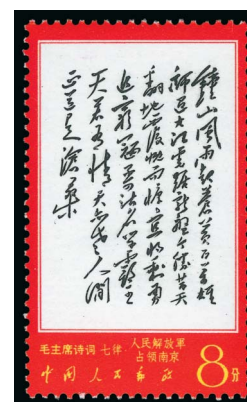 鐘山風雨起蒼黄百万雄
師过大江虎踞龍盤今勝昔天
翻地覆慨而慷宜將剩勇
追窮寇不可沽名学霸王
天若有情天亦老人间
正道是滄桑
毛主席诗词 七律·人民解放軍占领南京
中国人民邮政 8分